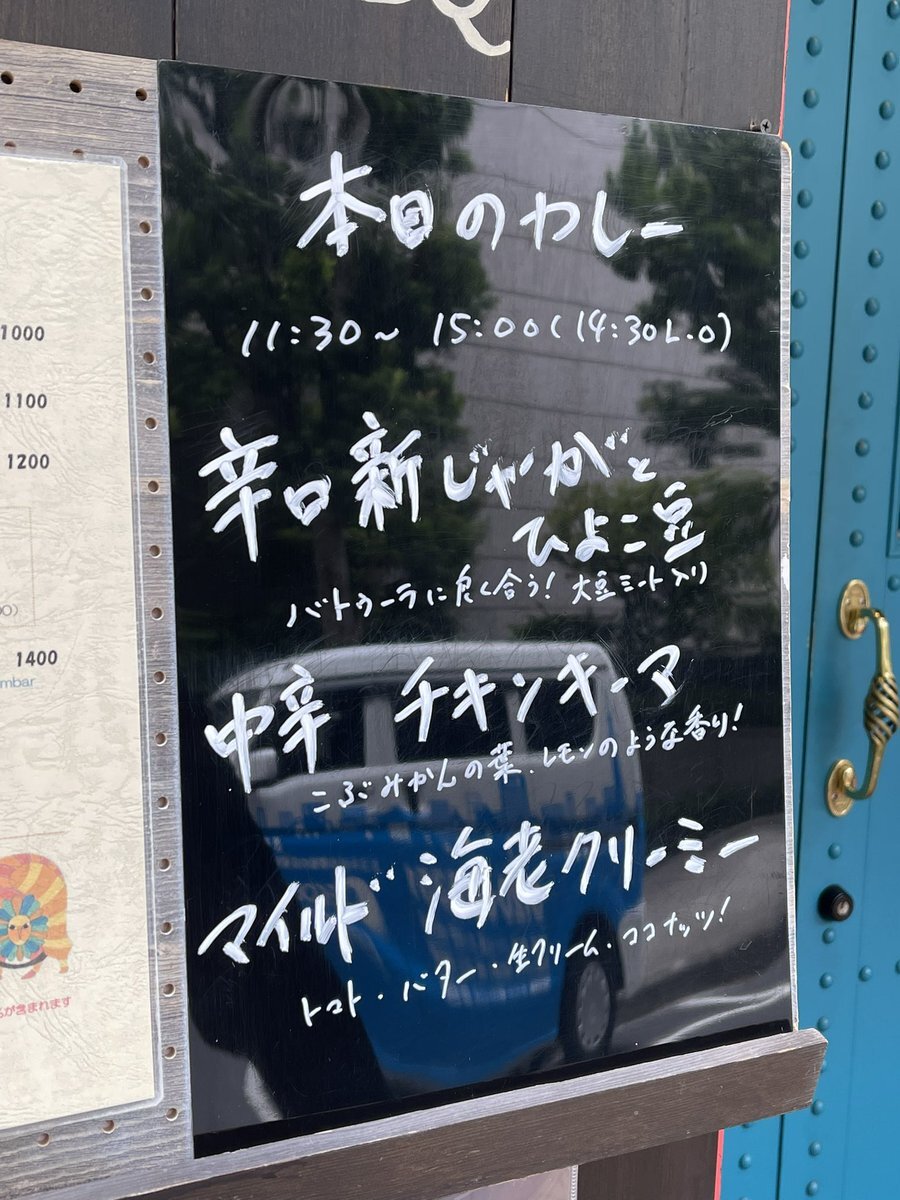 本日のカレー
11:30～ 15:00(14:30L.O)
辛口 新じゃがと
ひよこ豆
バトゥーラに良く合う! 大豆ミート入り
中辛 チキンキーマ
こぶみかんの葉、レモンのような香り!
マイルド 海老クリーミー
トマト・バター・生クリーム・ココナッツ!
1000
1100
1200
00)
1400
mbar
が含まれます